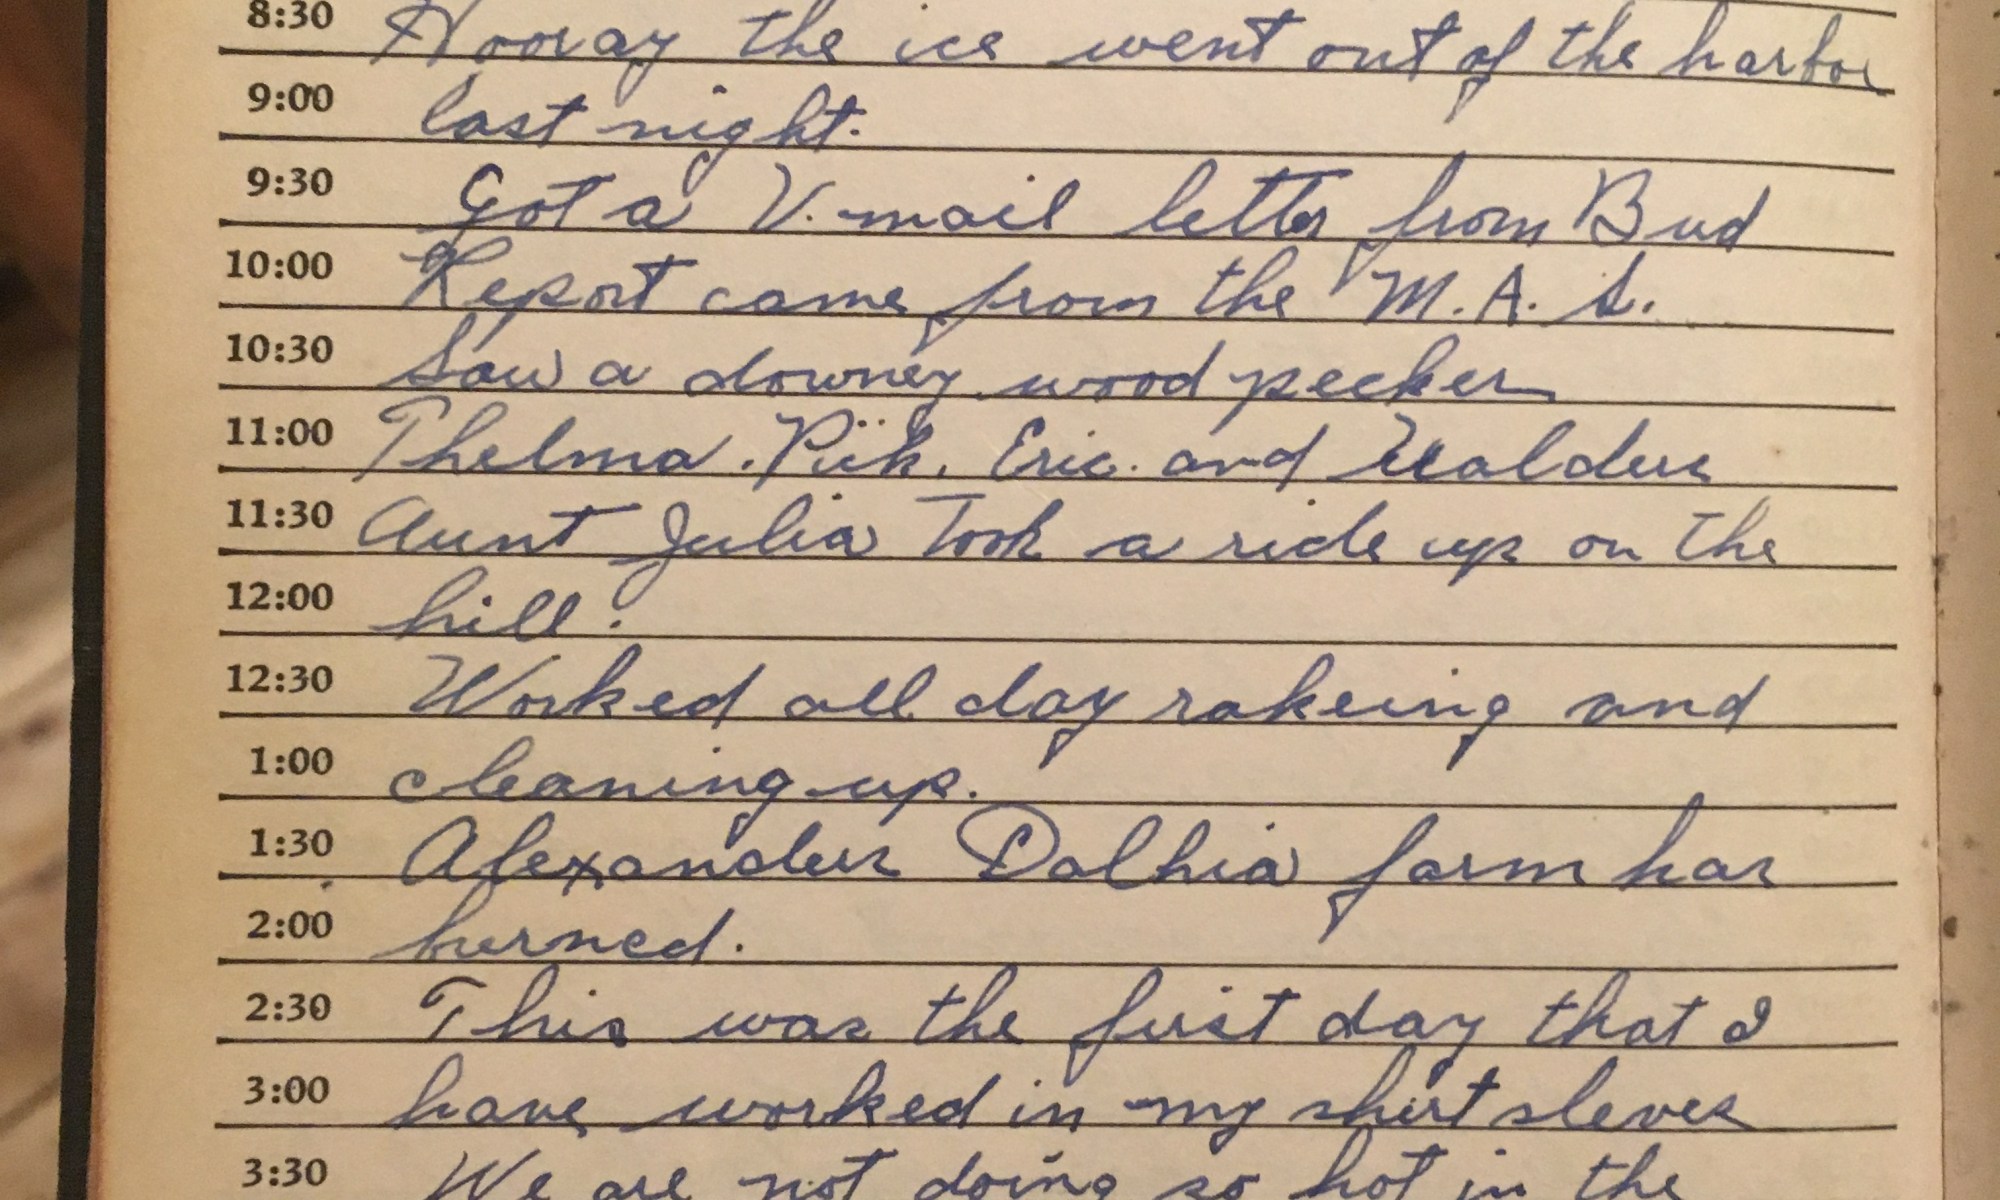 8:30 Hooray the ice went out of the harbor
9:00 last night.
9:30 Got a V.mail letter from Bud
10:00 Report came from the M.A.S.
10:30 Saw a downey wood pecker
11:00 Thelma. Piik. Eric. and
11:30 Aunt Julia Took a ride up on the
12:00 hill.
12:30 Worked all day rakeing and
1:00 cleaning up.
1:30 Alexanders Dalhia farm has
2:00 burned.
2:30 This was the first day that I
3:00 have worked in my shirt sleves
3:30 We are not doing so hot in the